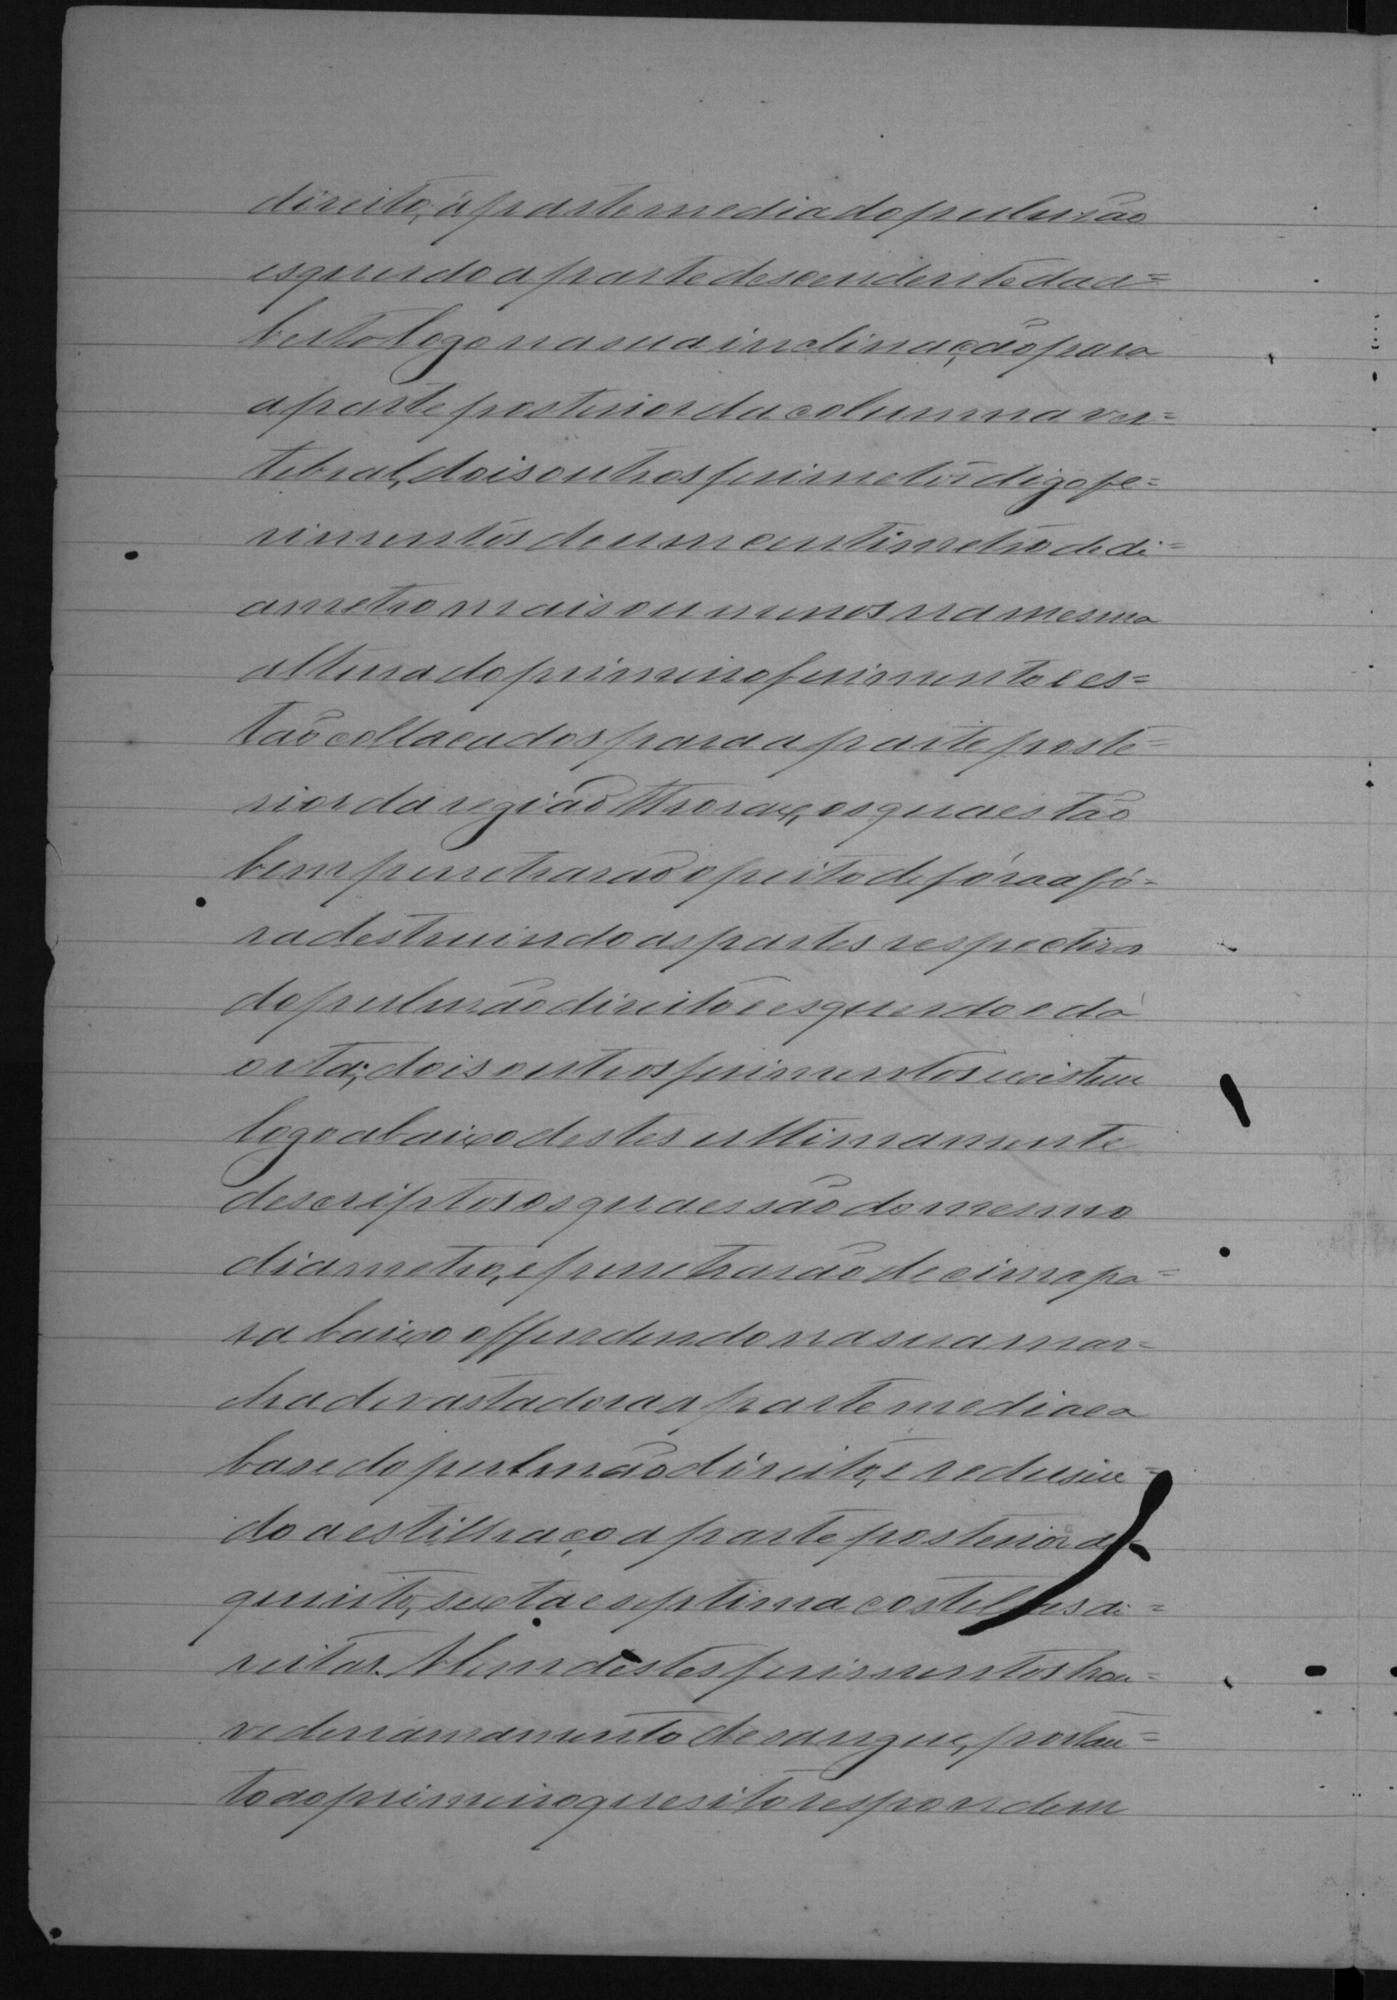 direito, a parte media do pulmão
esquerdo a parte descendente da a=
berto logo na sua inclinação para
a parte posterior da columna ver=
tebral, dois outros ferimetos digo fe=
rimentos de um centimetro de di=
ametro mais ou menos na mesma
altura do primeiro ferimento e es=
tão collocados para a parte poste=
rior da região thorax, os quaes tão
bem penetrarão o peito de fóra a fó=
ra destruindo as partes respectiva
do pulmão direito e esquerdo e da
orta; dois outros ferimentos existem
logo abaixo destes ultimamente
descriptos os quaes são do mesmo
diametro, e penetrarão de cima pa=
ra baixo offendendo na sua mar=
cha devastadora a parte media e a
base do pulmão direito, e redusin=
do a estilhaço a parte posterior da
quinta, sexta e septima costellas di=
reitas. Alem destes ferimentos hou=
ve derramamento de sangue, portan=
to ao primeiro quesito respondem